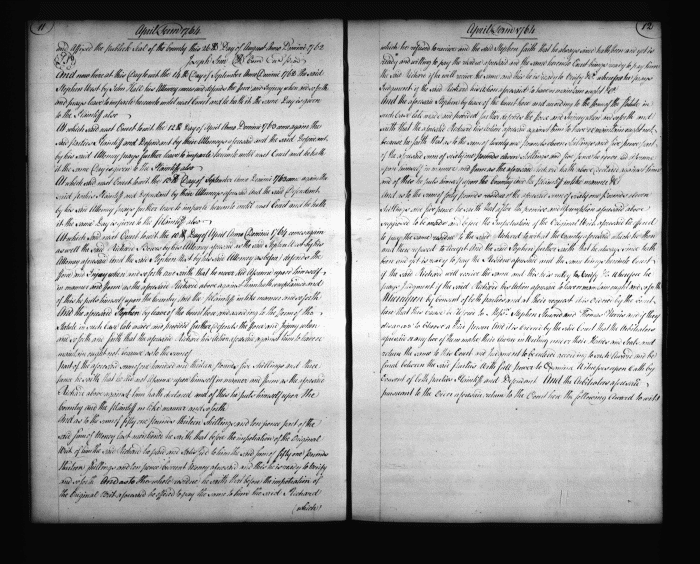 11
April Term 1764
and affixed the publick Seal of the County this 26th Day of August Anno Domini 1762
Joseph Sim
And now here at this Day to wit the 14th Day of September Anno Domini 1762 the said
Stephen West by John Hall his Attorney comes and defends the force and Injury when and so forth
and prays leave to imparle hereunto until next Court and to he hath the same Day is given
to the Plaintiff also
At which said next Court to wit the 12th Day of April Anno Domini 1763 came again the
said parties Plaintiff and Defendant by their Attorneys aforesaid and the said Defendant
by his said Attorney prays further leave to imparle hereunto until next Court and he hath
it the same Day is given to the Plaintiff also
At which said next Court to wit the Day of September Anno Domini again the
said parties Plaintiff and Defendant by their Attorneys aforesaid and the said Defendant
by his said Attorney prays further leave to imparle hereunto until next Court and he hath
it the same Day is given to the Plaintiff also
At which said next Court to wit the 10th Day of April Anno Domini 1764 came again
as well the said Richard by his Attorney aforesaid as the said Stephen West by his
Attorney aforesaid and the said Stephen West by his said Attorney as before defends the
force and Injury when and so forth and saith that he never did Assume upon himself
in manner and form as the aforesaid Richard above against him hath complained and
of this he puts himself upon the Country and the Plaintiff in like manner and so forth
And the aforesaid Stephen by leave of the Court here and according to the form of the
Statute in such Case late made and provided further defends the force and Injury when
and so forth and saith that the aforesaid Richard his Action aforesaid against him to have or
maintain ought not because as to the sum of
part of the aforesaid sum of one hundred and thirteen pounds five shillings and three
pence he saith that he did not Assume upon himself in manner and form as the aforesaid
Richard above against him hath declared and of this he puts himself upon the
Country and the Plaintiff in like manner and so forth
And as to the sum of fifty one pounds thirteen Shillings and ten pence part of the
said sum of Money Each mentioned he saith that before the impetration of the Original
Writ of him the said Richard he paid and satisfied to him the said sum of fifty one pounds
thirteen Shillings and ten pence Current Money aforesaid and this he is ready to verify
and so forth And as to the whole residue he saith that before the impetration of
the Original Writ aforesaid he offered to pay the same to him the said Richard
(which)
12
April Term 1764
which he refused to receive and the said Stephen saith that he always since hath been and yet is
ready and willing to pay the residue aforesaid and the same here in Court brings ready to pay him
the said Richard if he will receive the same and this he is ready to verify &c wherefore he prays
Judgment if the said Richard his Action aforesaid to have or maintain ought &c
And the aforesaid Stephen by leave of the Court here and according to the form of the Statute in
such Case late made and provided further defends the force and Injury when and so forth and
saith that the aforesaid Richard his Action aforesaid against him to have or maintain ought not
because he saith that as to the sum of sixty one pounds eleven Shillings and five pence part
of the aforesaid sum of sixty one pounds eleven Shillings and five pence he never did Assume
upon himself in manner and form as the aforesaid Richard hath above declared against him
and of this he puts himself upon the Country and the Plaintiff in like manner &c
And as to the sum of fifty pounds residue of the aforesaid sum of sixty one pounds eleven
shillings and five pence he saith that after the promise and Assumption aforesaid above
supposed to be made and before the impetration of the Original Writ aforesaid he offered
to pay the same residue to the said Richard to wit at the County aforesaid which he then
and there refused to accept And the said Stephen further saith that he always since hath
been and yet is ready to pay the Residue aforesaid and the same brings here into Court
if the said Richard will receive the same and this he is ready to verify &c Wherefore he
prays Judgment if the said Richard his Action aforesaid to have or maintain ought and so forth
Whereupon by consent of both parties and at their request it is Ordered by the Court
then that the Cause is Referred to Messrs Stephen and Thomas and if they
disagree to Choose a third person And it is Ordered by the said Court that the Arbitrators
aforesaid or any two of them make their Award in Writing under their Hands and Seals and
return the same to this Court and Judgment to be entered according to such Award and be
final between the said Parties with full power to Examine Witnesses upon Oath by
Consent of both parties Plaintiff and Defendant And the Arbitrators aforesaid
pursuant to the Order aforesaid return to the Court here the following Award to wit